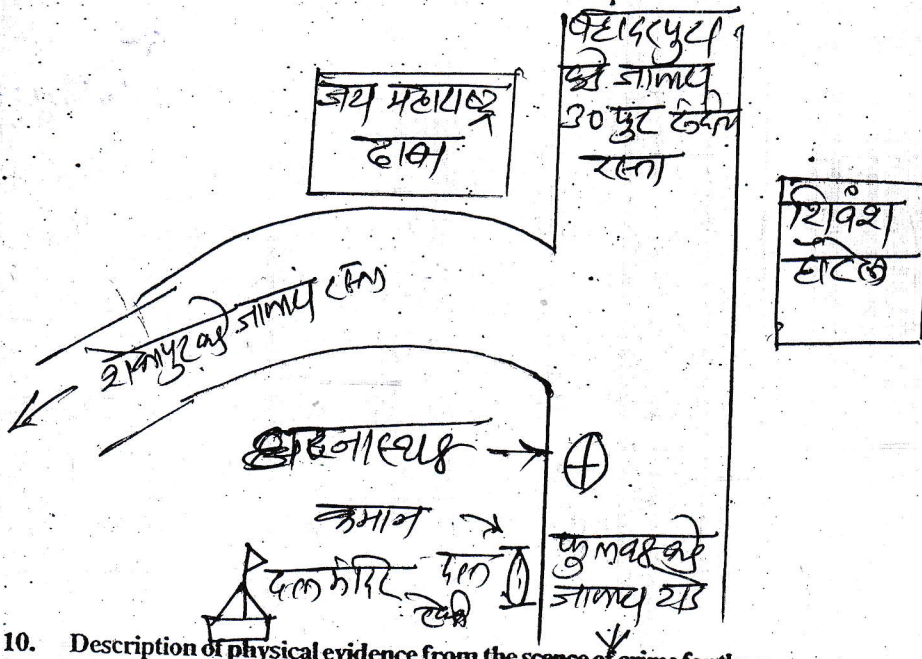 बहादरपुरा
कडे जाणारा
30 फुट रुंदीचा
रस्ता
जय महाराष्ट्र
ढाबा
शिवंश
हॉटेल
कडे जाणारा रस्ता
घटनास्थळ
कमान
दत्त मंदिर
दत्त
फुलवळ कडे
जाणारा रोड
10. Description of physical evidence from the scence of crime for the